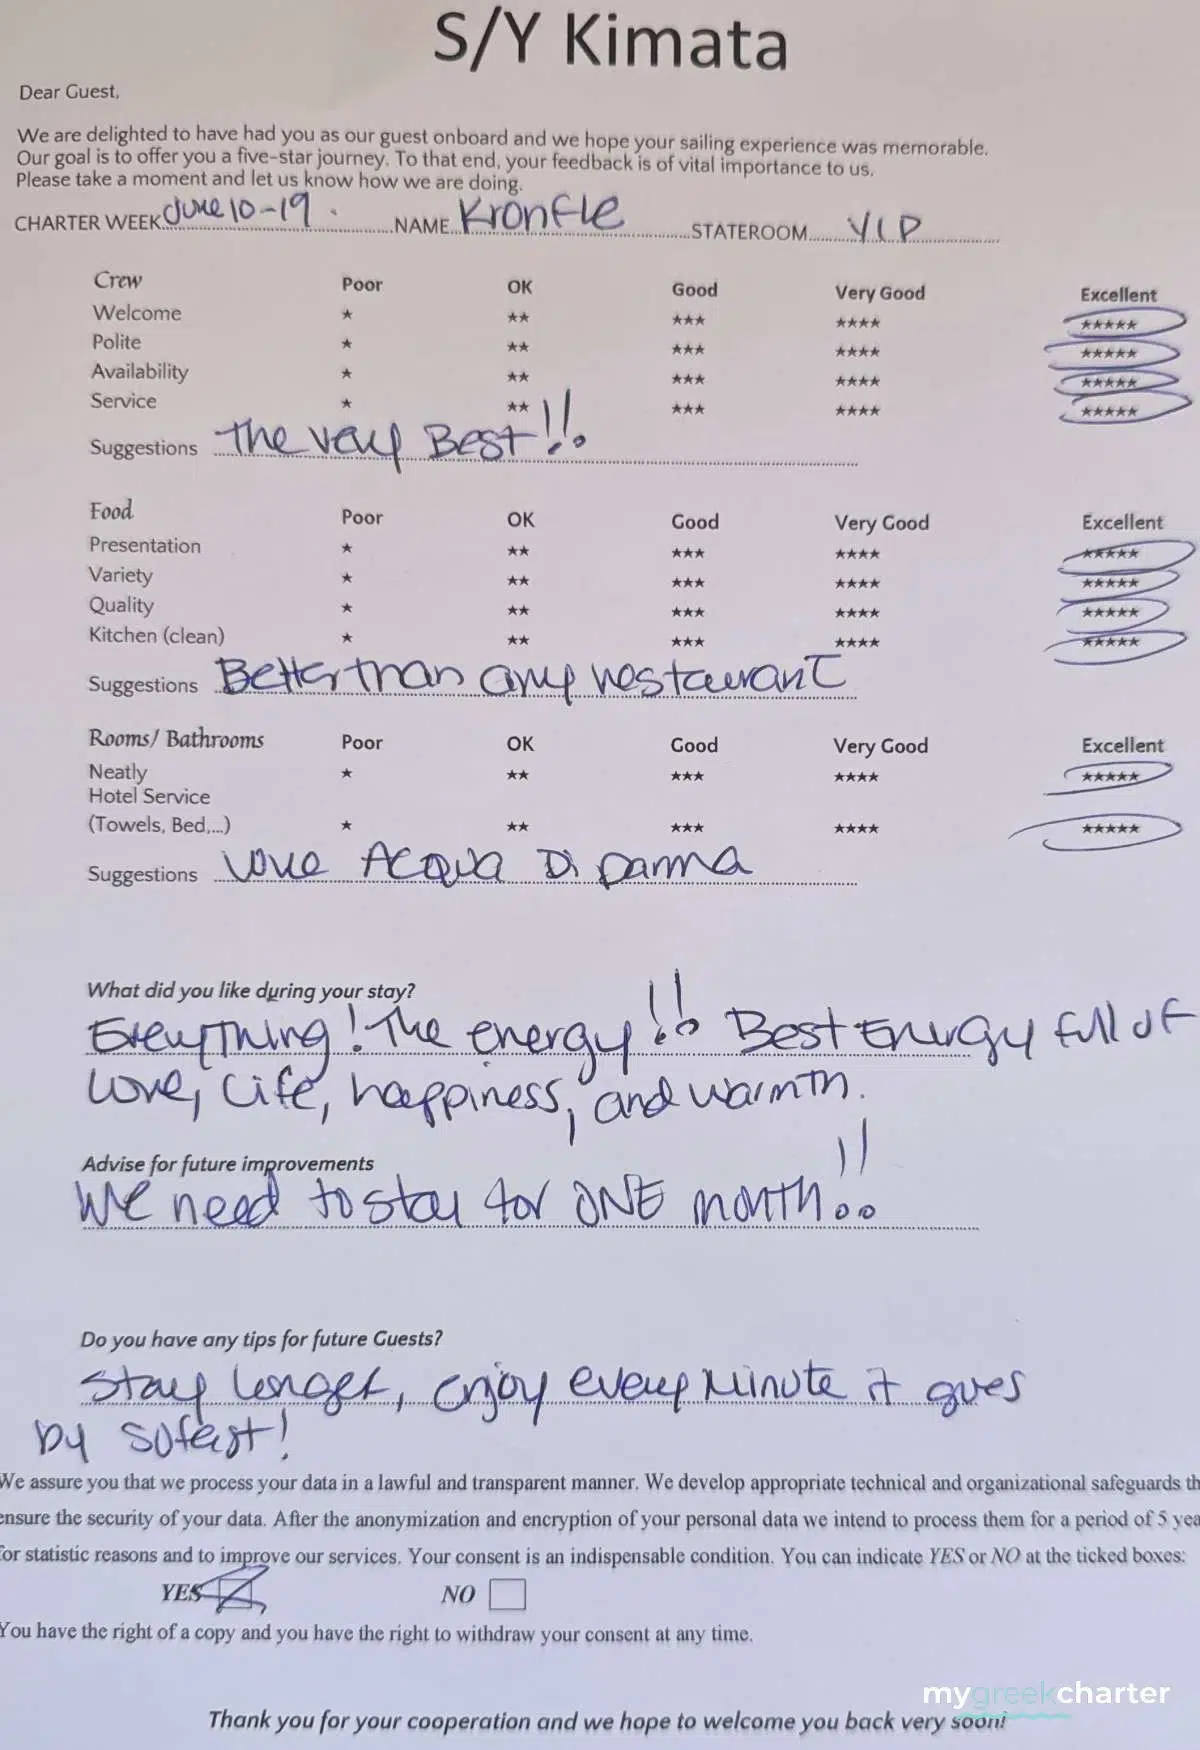 S/Y Kimata
Dear Guest,
We are delighted to have had you as our guest onboard and we hope your sailing experience was memorable.
Our goal is to offer you a five-star journey. To that end, your feedback is of vital importance to us.
Please take a moment and let us know how we are doing.
CHARTER WEEK June 10-19. NAME Kronfle STATEROOM VIP
Crew Poor OK Good Very Good Excellent
Welcome ★ ★★ ★★★ ★★★★ ★★★★★
Polite ★ ★★ ★★★ ★★★★ ★★★★★
Availability ★ ★★ ★★★ ★★★★ ★★★★★
Service ★ ★★ ★★★ ★★★★ ★★★★★
Suggestions The very Best!!
Food Poor OK Good Very Good Excellent
Presentation ★ ★★ ★★★ ★★★★ ★★★★★
Variety ★ ★★ ★★★ ★★★★ ★★★★★
Quality ★ ★★ ★★★ ★★★★ ★★★★★
Kitchen (clean) ★ ★★ ★★★ ★★★★ ★★★★★
Suggestions Better than any restaurant
Rooms/ Bathrooms Poor OK Good Very Good Excellent
Neatly ★ ★★ ★★★ ★★★★ ★★★★★
Hotel Service
(Towels, Bed,...) ★ ★★ ★★★ ★★★★ ★★★★★
Suggestions Love Acqua Di parma
What did you like during your stay?
Everything! The energy!! Best Energy full of
love, life, happiness, and warmth.
Advise for future improvements
We need to stay for ONE month!!
Do you have any tips for future Guests?
Stay longer, enjoy every minute it goes
by so fast!
We assure you that we process your data in a lawful and transparent manner. We develop appropriate technical and organizational safeguards th
ensure the security of your data. After the anonymization and encryption of your personal data we intend to process them for a period of 5 yea
for statistic reasons and to improve our services. Your consent is an indispensable condition. You can indicate YES or NO at the ticked boxes:
YES NO
You have the right of a copy and you have the right to withdraw your consent at any time.
mygreekcharter
Thank you for your cooperation and we hope to welcome you back very soon!